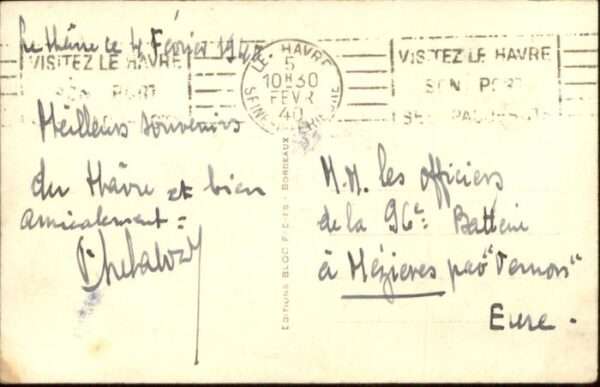 Le Hâvre ce 4 Février 1940
VISITEZ LE HAVRE
SON PORT
LE HAVRE
5
10H30
FEVR
40
SEINE
VISITEZ LE HAVRE
SON PORT
SES PAQUEBOTS
Meilleurs souvenirs
du Hâvre et bien
amicalement =
M.M. les officiers
de la 96e Batterie
à Mézières par "Vernon"
Eure.
EDITIONS BLOC FRERES - BORDEAUX